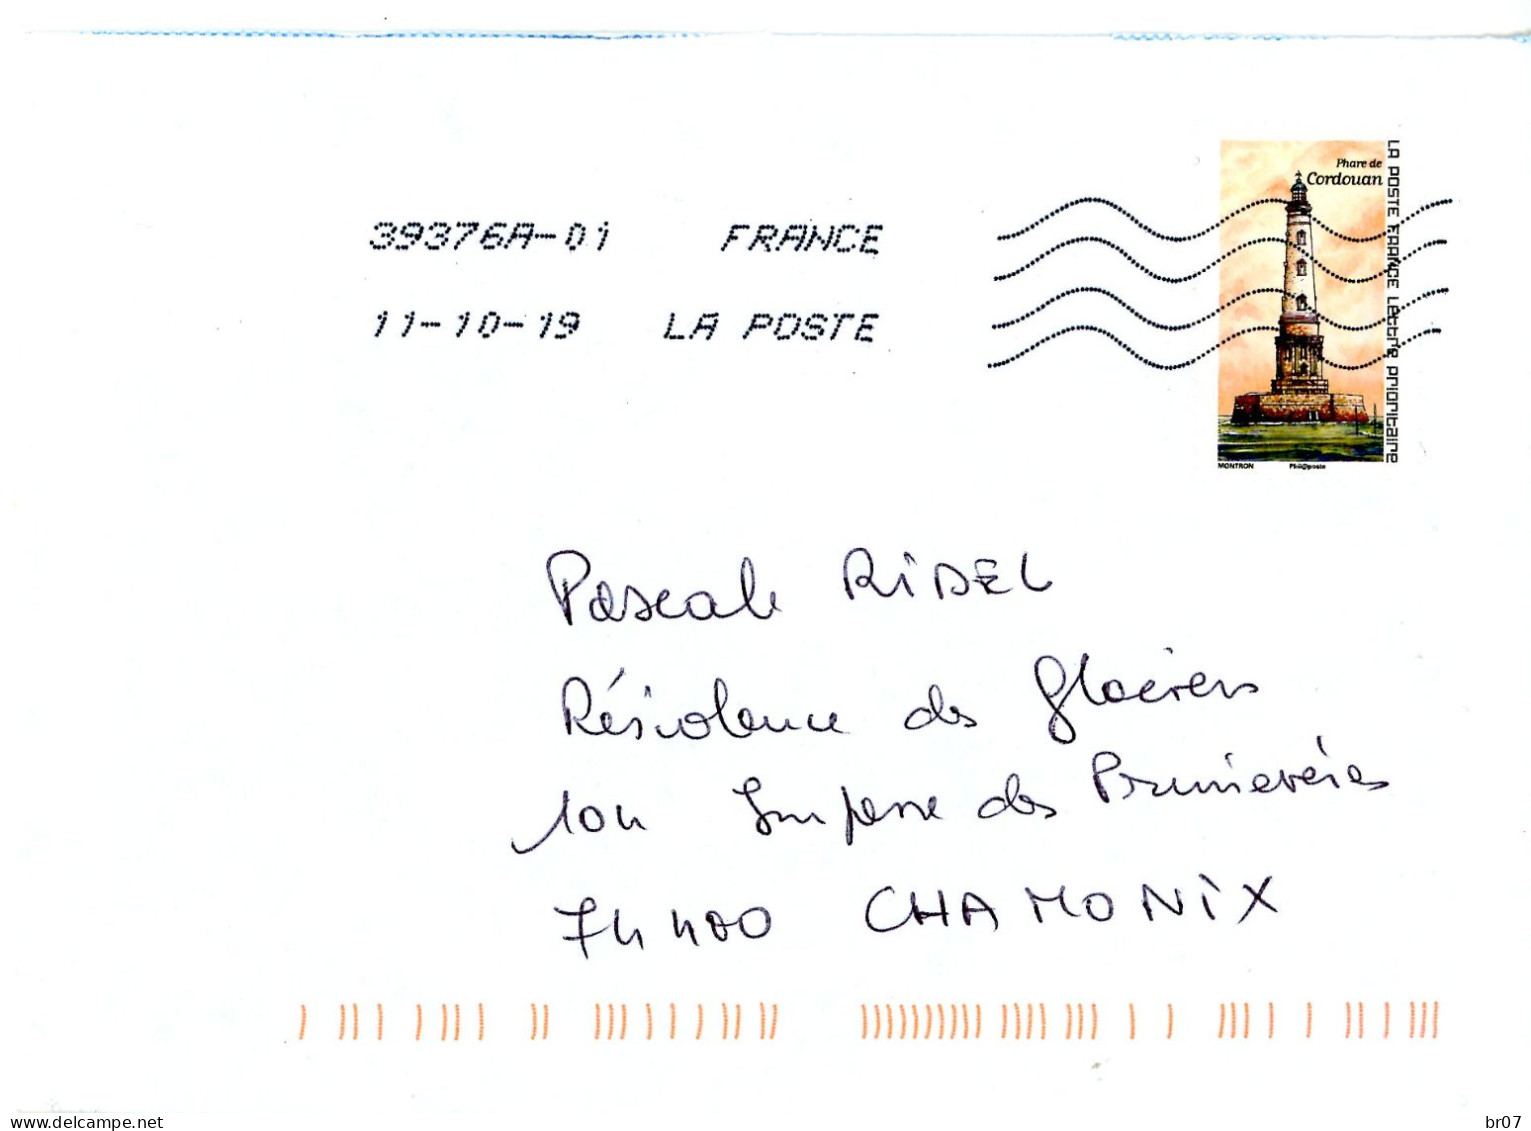 Phare de
Cordouan
LA POSTE FRANCE Lettre prioritaire
39376A-01 FRANCE
11-10-19 LA POSTE
MONTRON Phil@poste
Pascale RIDEL
Résidence des Glaciers
104 Impasse des Primevères
74400 CHAMONIX
delcampe.net
br07